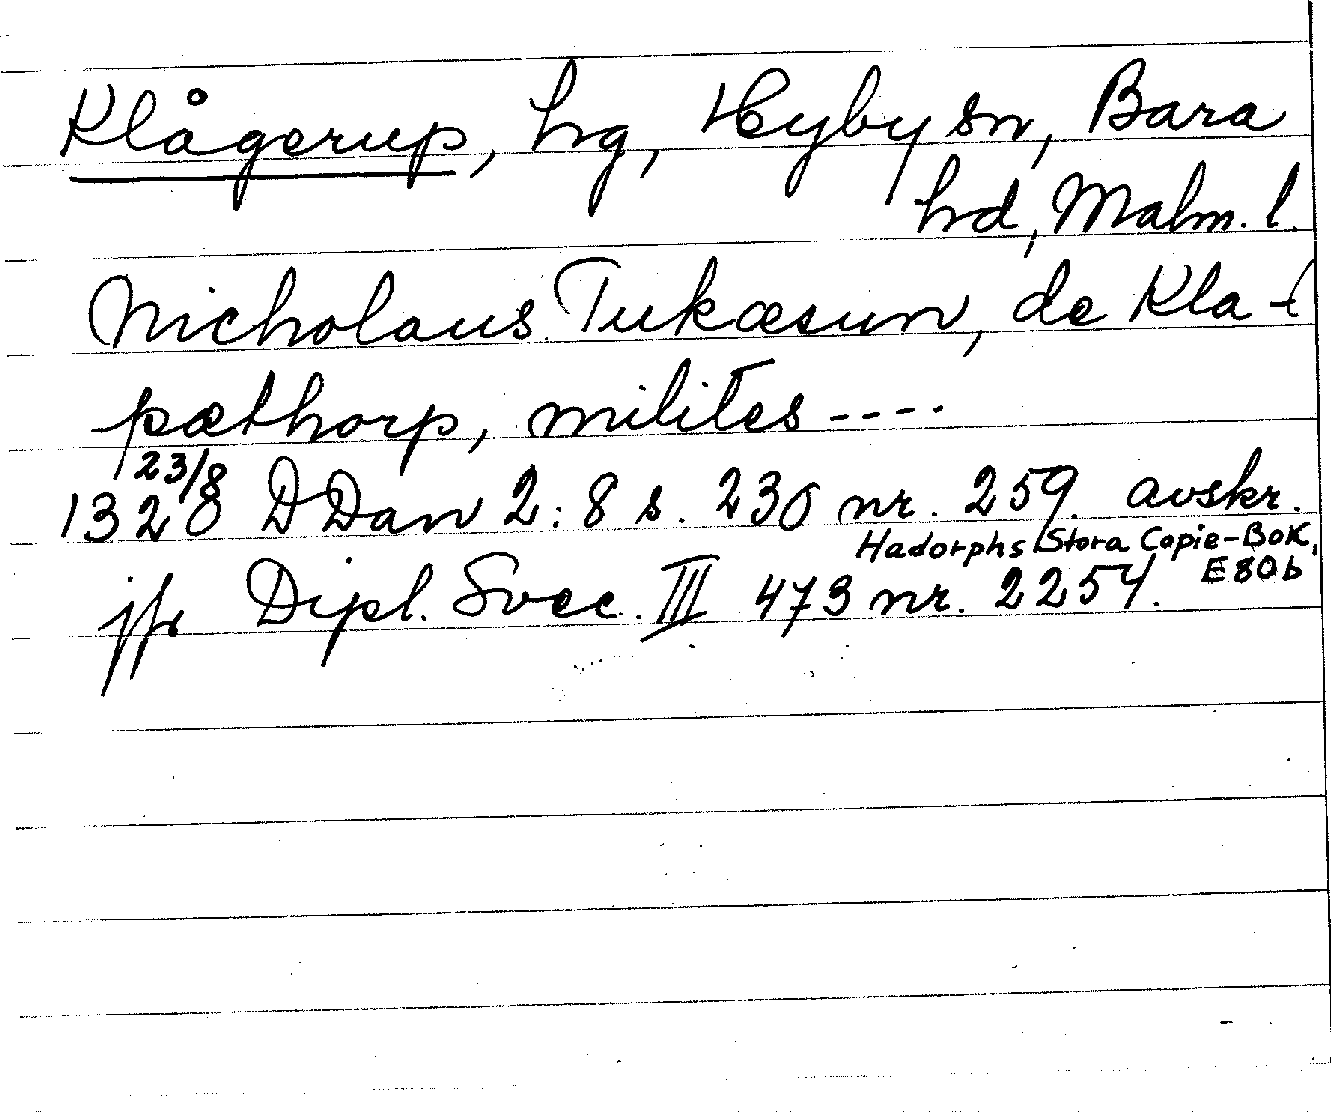 Klågerup, hg, Hyby sn, Bara
hd, Malm. l.
Nicholaus Tukæsun, de Kla-
pæthorp, milites ----
23/8
1320 DDan 2:8 s. 230 nr. 259. avskr.
Hadorphs Stora Copie-Bok,
E80b
jfr Dipl. Svec. III 473 nr. 2254.